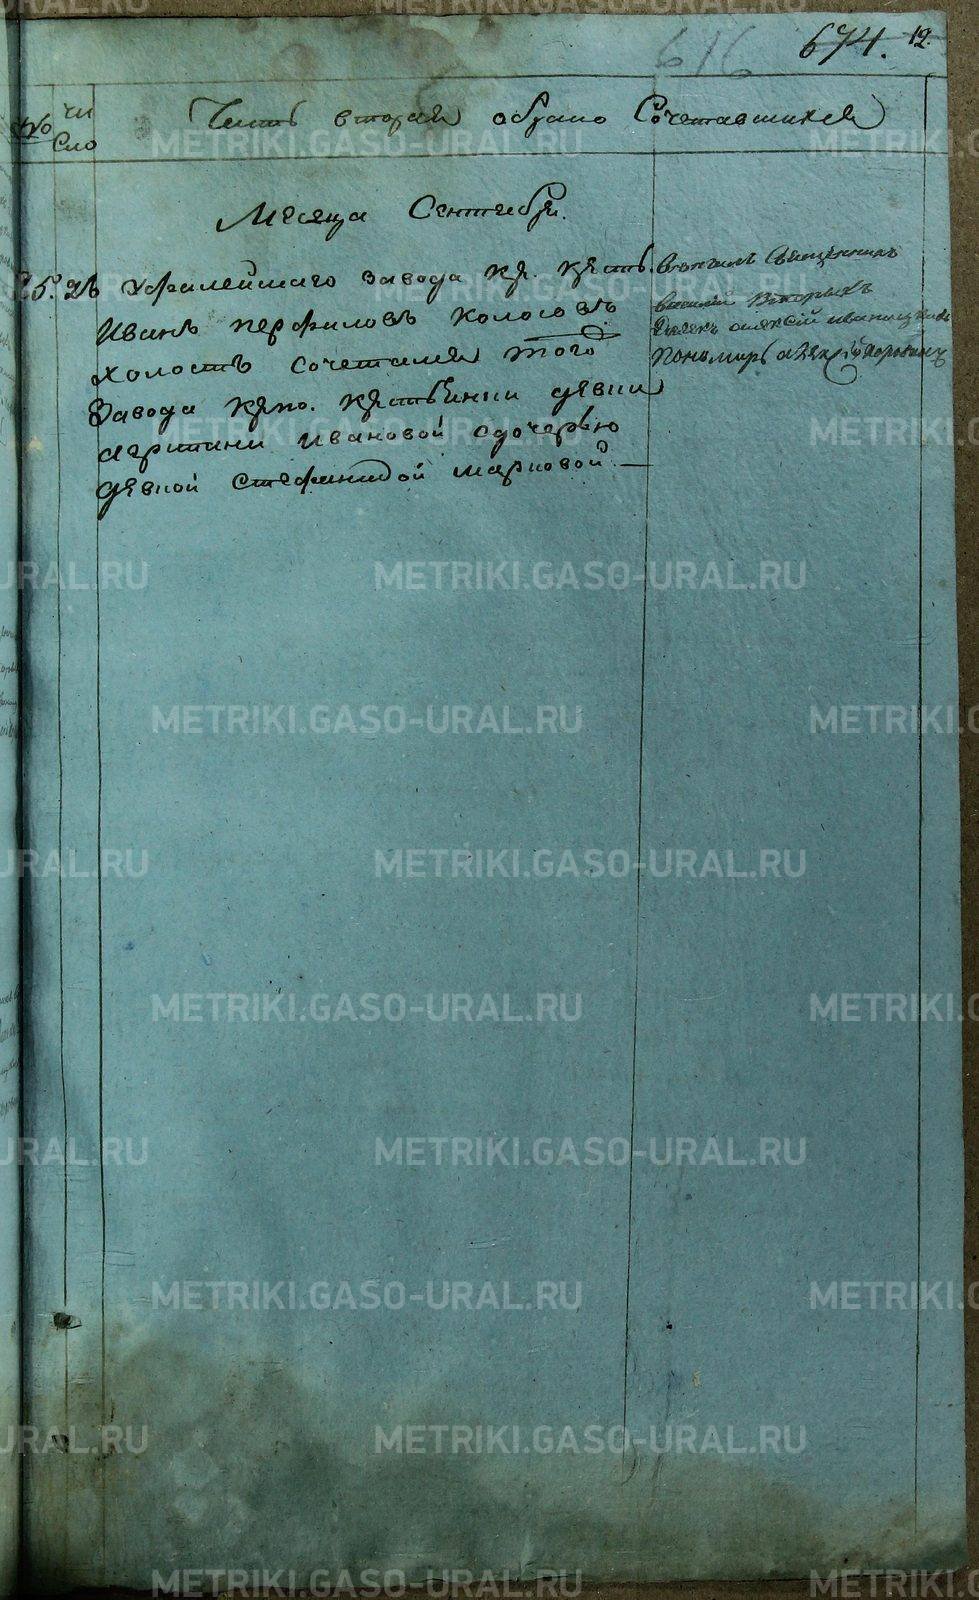 616 674. 12.
№ чи
сло
Часть вторая о брако Сочетавшихся
Месяца Сентября.
Уфалейшаго завода кр. крстъ.
Иванъ перфиловъ Кологовъ
холостъ сочетался того
Завода крпо. крстьянки девки
ивановой сдочерью
девкой стефанидой марковой. —
Венчалъ Священникъ
василий
алексий
пономарь алексий
METRIKI.GASO-URAL.RU